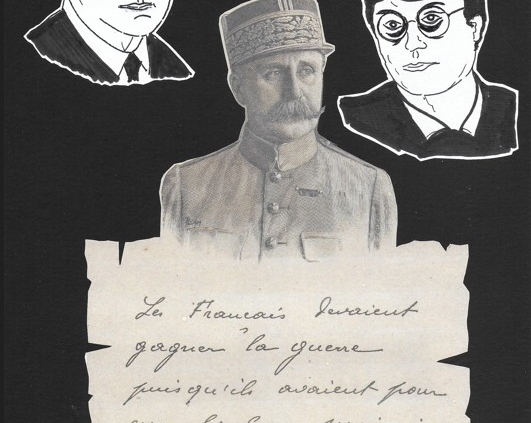 Les Francais devaient
gagner la guerre
puisqu'ils avaient pour